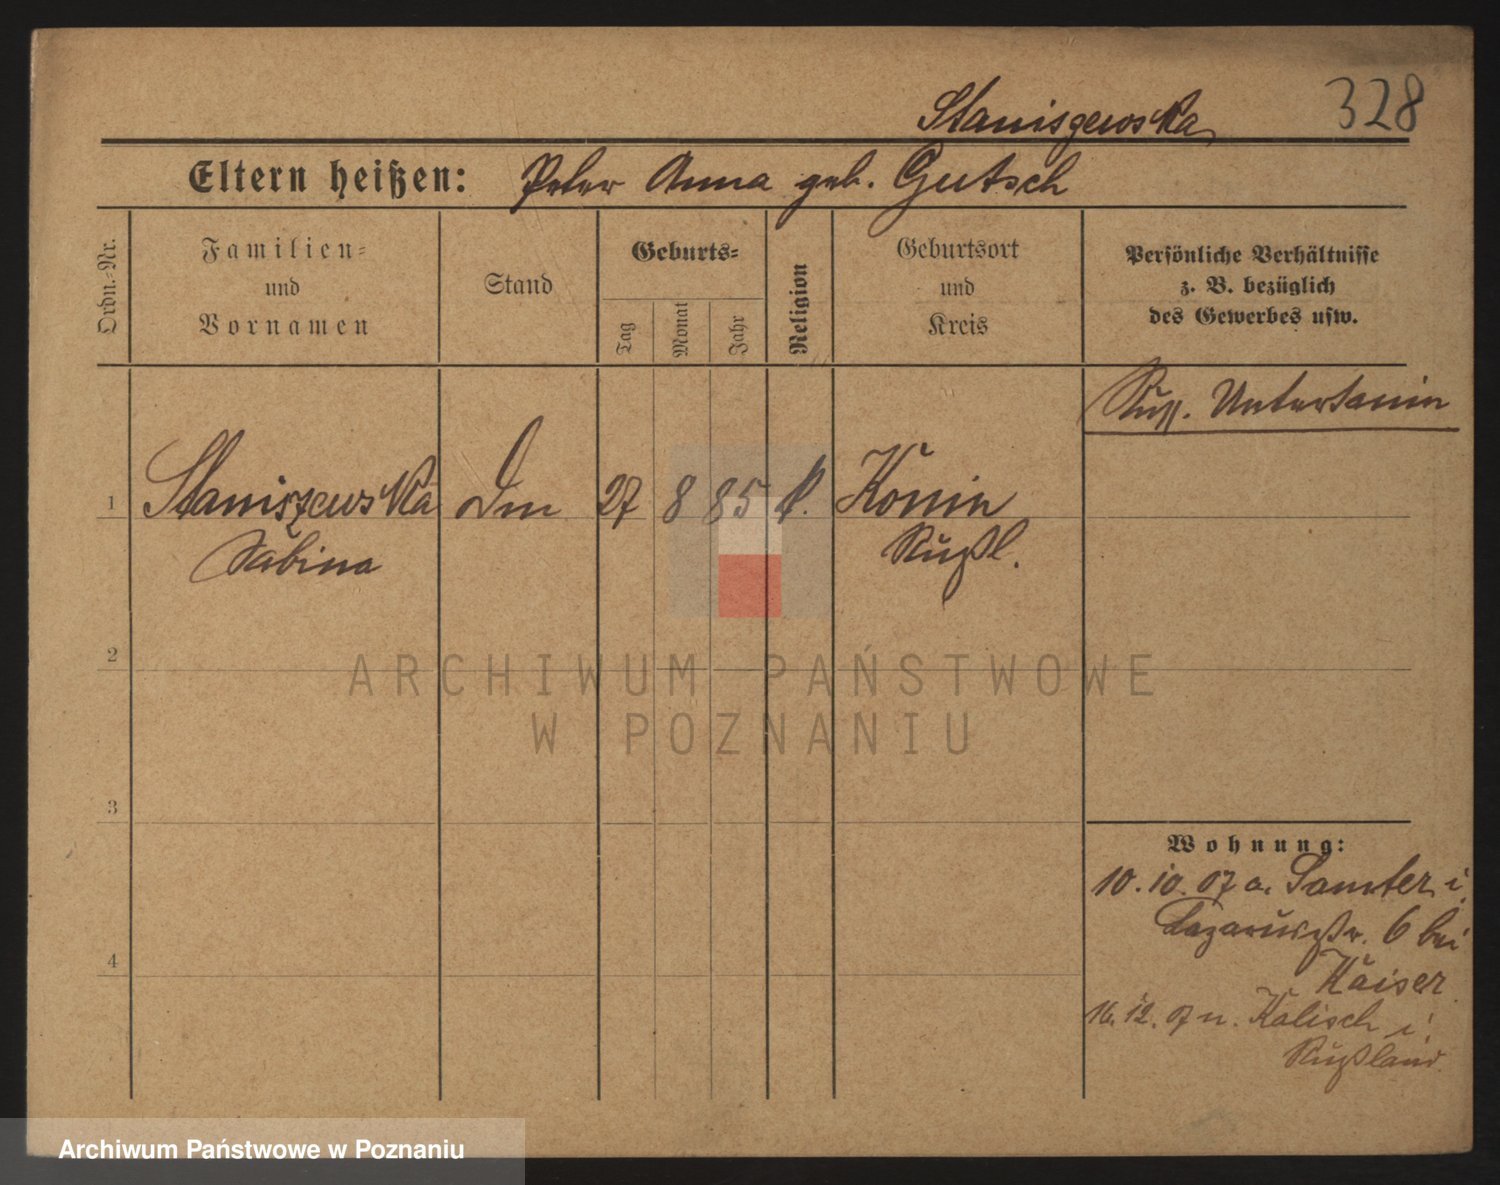 Staniszewska
328
Eltern heißen: Peter Anna geb. Gutsch
Ordn.-Nr.
Familien-
und
Vornamen
Stand
Geburts-
Tag
Monat
Jahr
Religion
Geburtsort
und
Kreis
Persönliche Verhältnisse
z. B. bezüglich
des Gewerbes usw.
Russ. Untertanin
1 Staniszewska Dm 27 8 85 k. Konin
Sabina Rußl.
2
3
4
Wohnung:
10. 10. 07 a. Samter i
Lazarusstr. 6 bei
Kaiser
16. 12. 07 n. Kalisch i
Rußland
ARCHIWUM PAŃSTWOWE
W POZNANIU
Archiwum Państwowe w Poznaniu